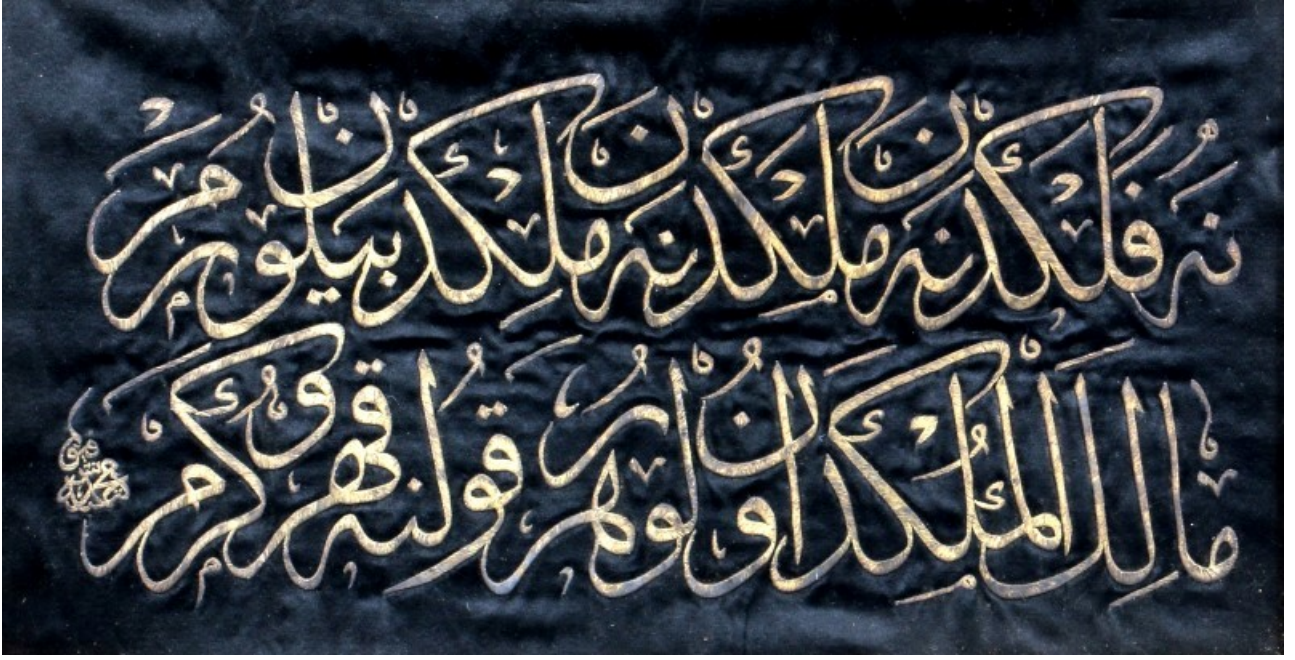 نه فلكدن نه ملكدن نه ملكدن بيلورم
مالك الملكدن اولور هر قولنه قهر و كرم